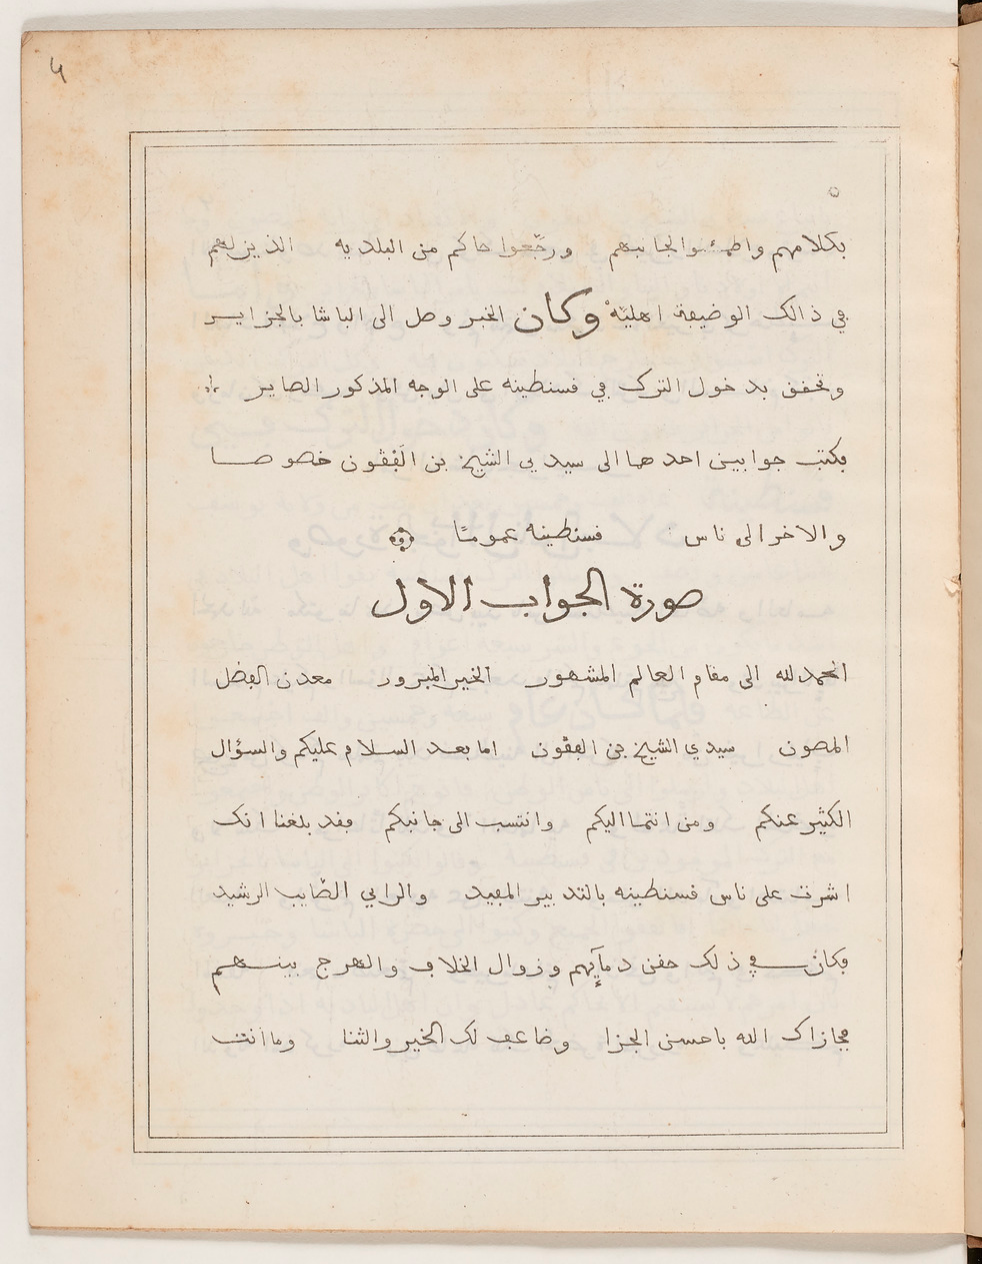 بكلامهم واطمئنوا لجانبهم ورجّعوا حاكم من البلديه الذين لهم
في ذالك الوضيفة اهليّة وكان الخبر وصل الى الباشا بالجزاير
وتحفق بدخول الترك في فسنطينه على الوجه المذكور الصاير
فكتب جوابين احدهما الى سيدي الشيخ بن الفڨون خصوصا
والاخر الى ناس فسنطينه عمومًا
صورة الجواب الاول
الحمد لله الى مقام العالم المشهور الخير المبرور معدن الفضل
المصون سيدي الشيخ بن الفڨون اما بعد السلام عليكم والسؤال
الكثير عنكم ومن انتما اليكم وانتسب الى جانبكم فقد بلغنا انك
اشرت على ناس فسنطينه بالتدبير المفيد والراي الصّايب الرشيد
فكان في ذلك حقن دمآيهم وزوال الخلاف والهرج بينهم
فجازاك الله باحسن الجزا وضاعف لك الخير والثنا وما انت